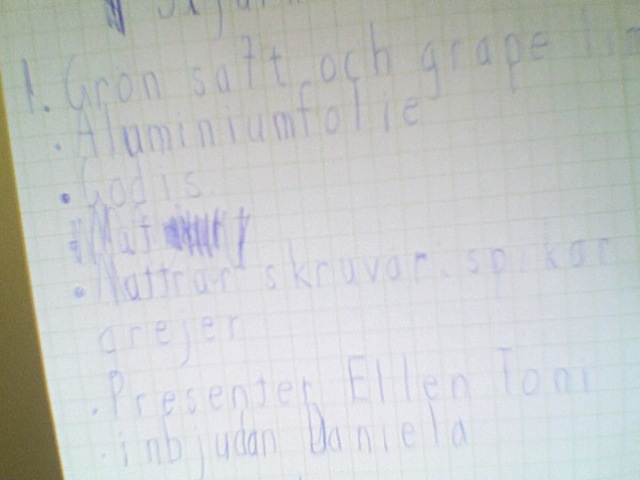 1. Grön saft och grape
. Aluminiumfolie
. Godis
. Mat
. skruvar spikar
grejer
. Presenter Ellen Toni
. inbjudan Daniela